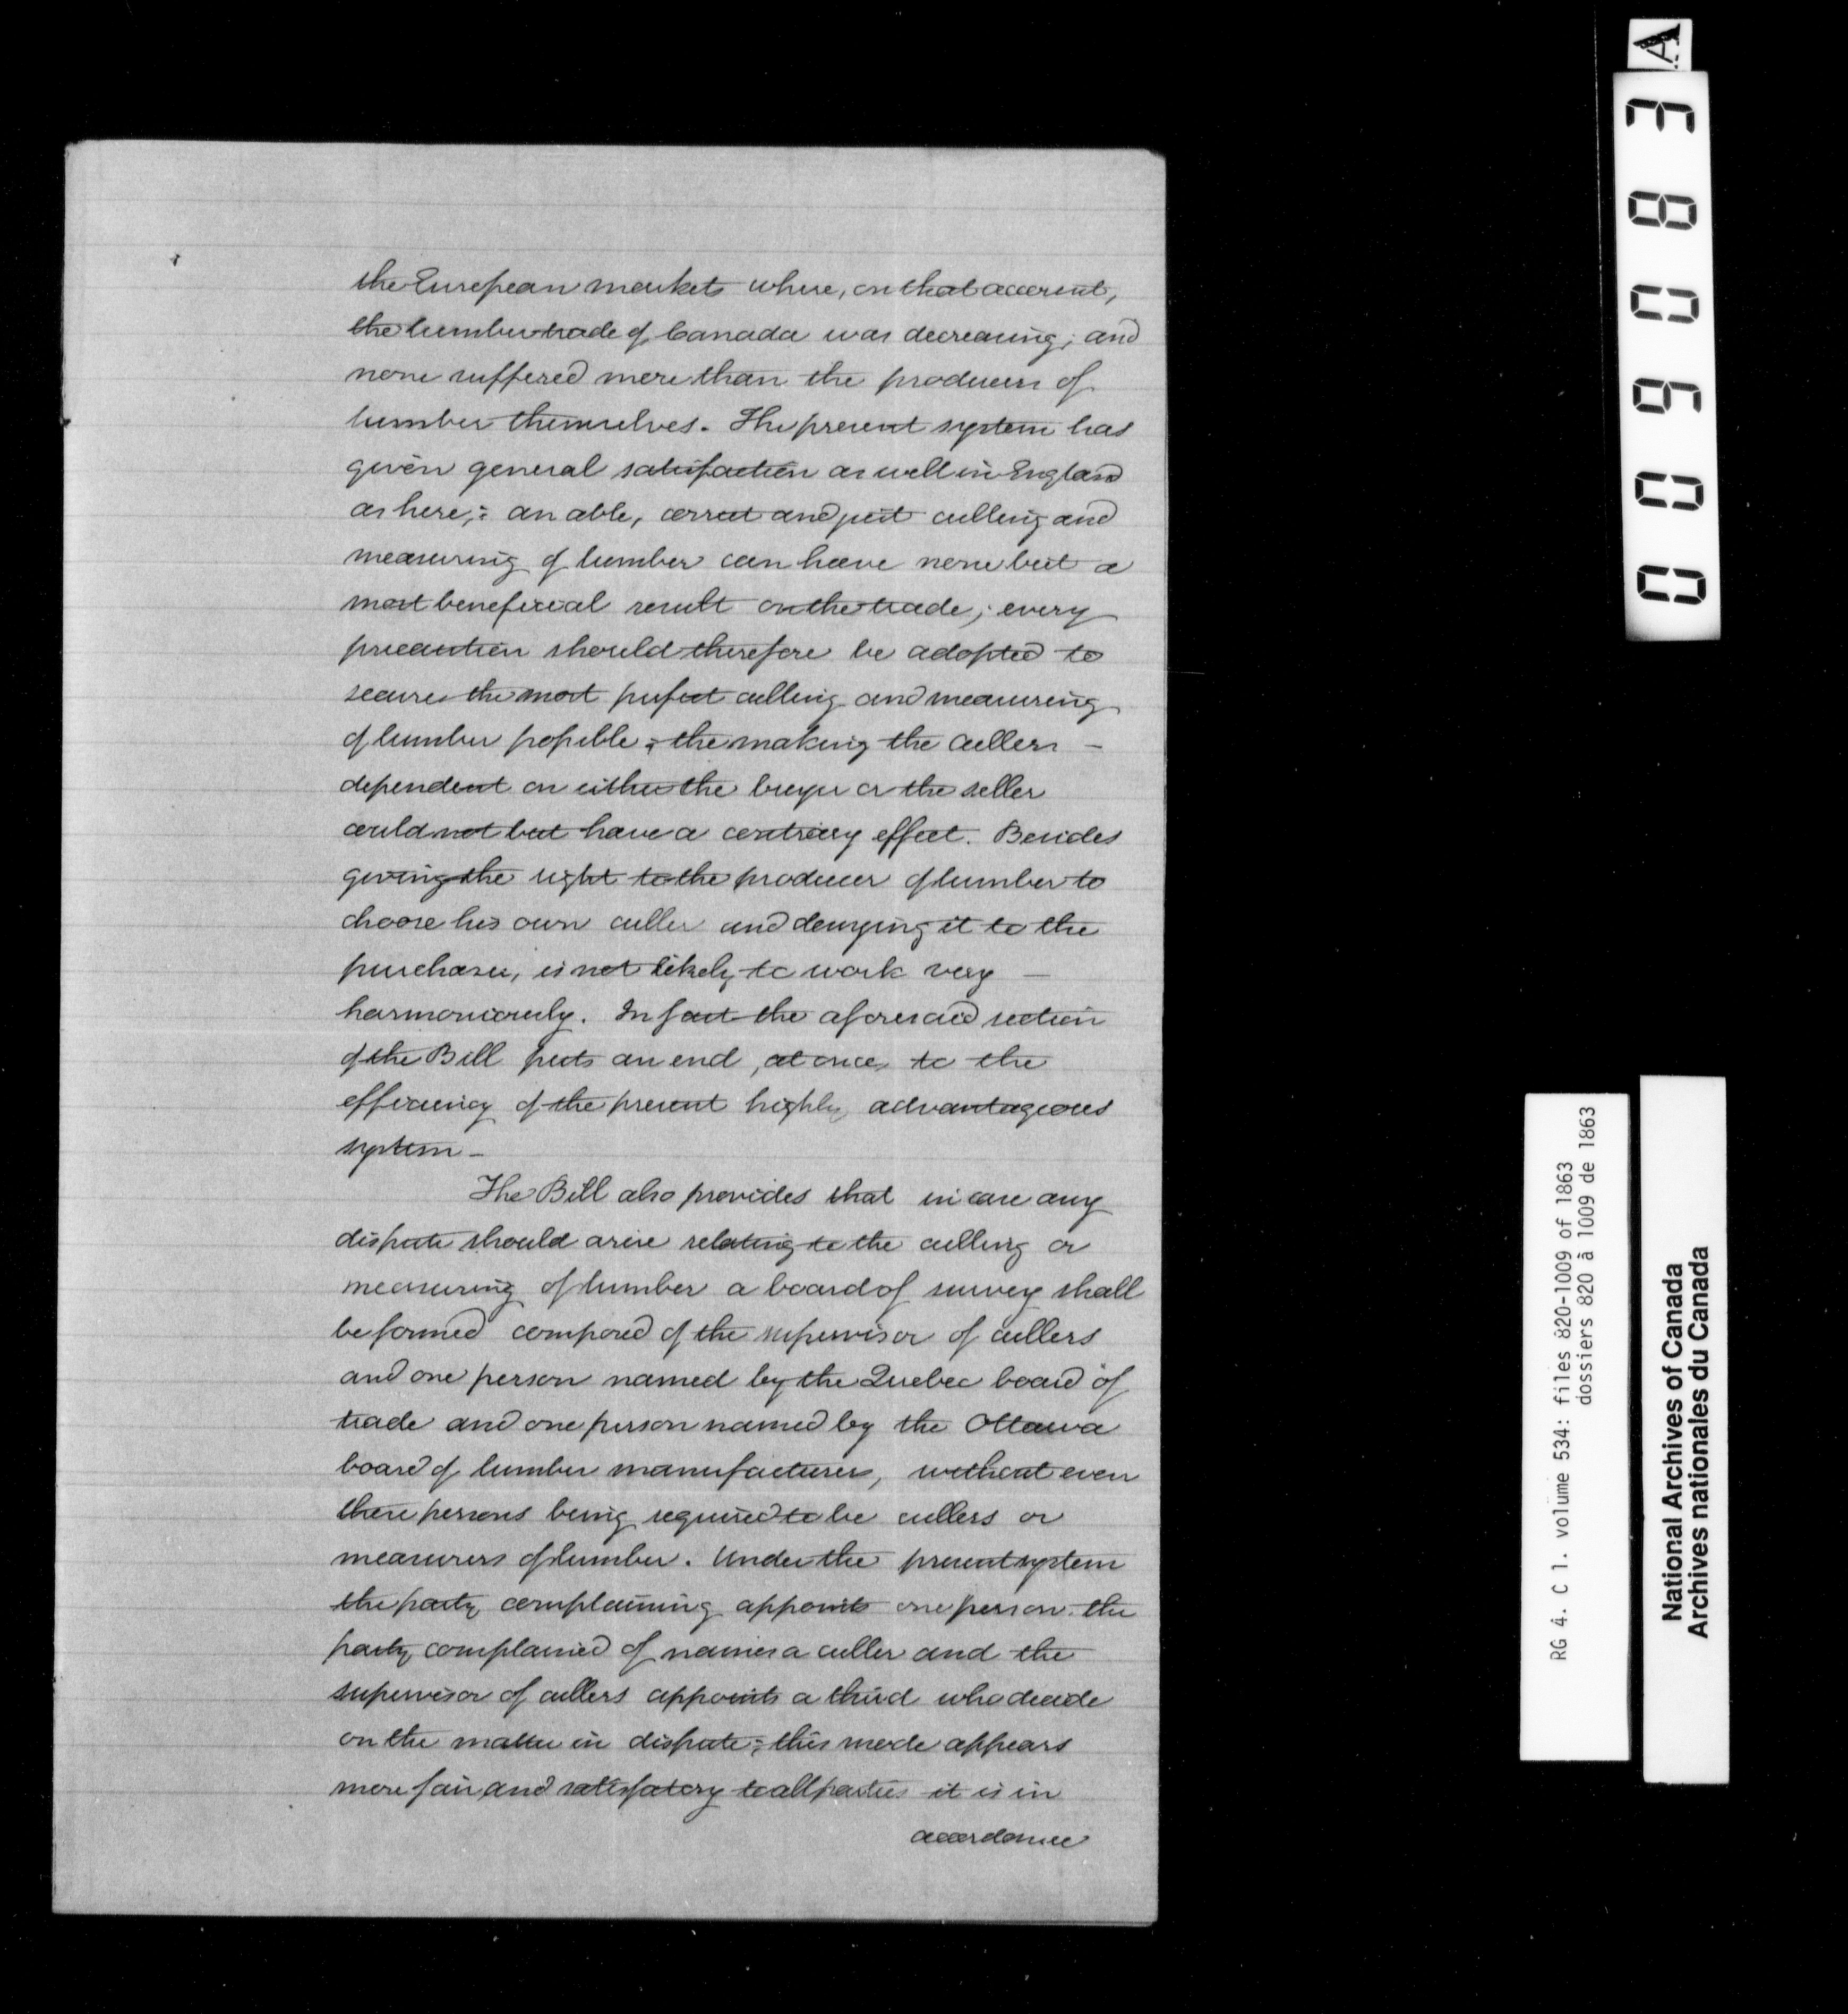 the European markets where, on that account,
the lumber trade of Canada was decreasing; and
none suffered more than the producers of
lumber themselves. The present system has
given general satisfaction as well in England
as here; an able, correct and just culling and
measuring of lumber can have none but a
most beneficial result on the trade; every
precaution should therefore be adopted to
secure the most perfect culling and measuring
of lumber possible; the making the cullers –
dependent on either the buyer or the seller
could not but have a contrary effect. Besides
giving the right to the producer of lumber to
choose his own culler and denying it to the
purchaser, is not likely to work very –
harmoniously. In fact the aforesaid section
of the Bill puts an end, at once, to the
efficiency of the present highly advantageous
system –
The Bill also provides that in case any
dispute should arise relating to the culling or
measuring of lumber a board of survey shall
be formed composed of the supervisor of cullers
and one person named by the Quebec board of
trade and one person named by the Ottawa
board of lumber manufacturers, without even
these persons being required to be cullers or
measurers of lumber. Under the present system
the party complaining appoints one person. the
party complained of names a culler and the
supervisor of cullers appoints a third who decide
on the matter in dispute; this mode appears
more fair and satisfatory to all parties it is in
accordance
A
009083
RG 4. C 1. volume 534: files 820-1009 of 1863
dossiers 820 à 1009 de 1863
National Archives of Canada
Archives nationales du Canada